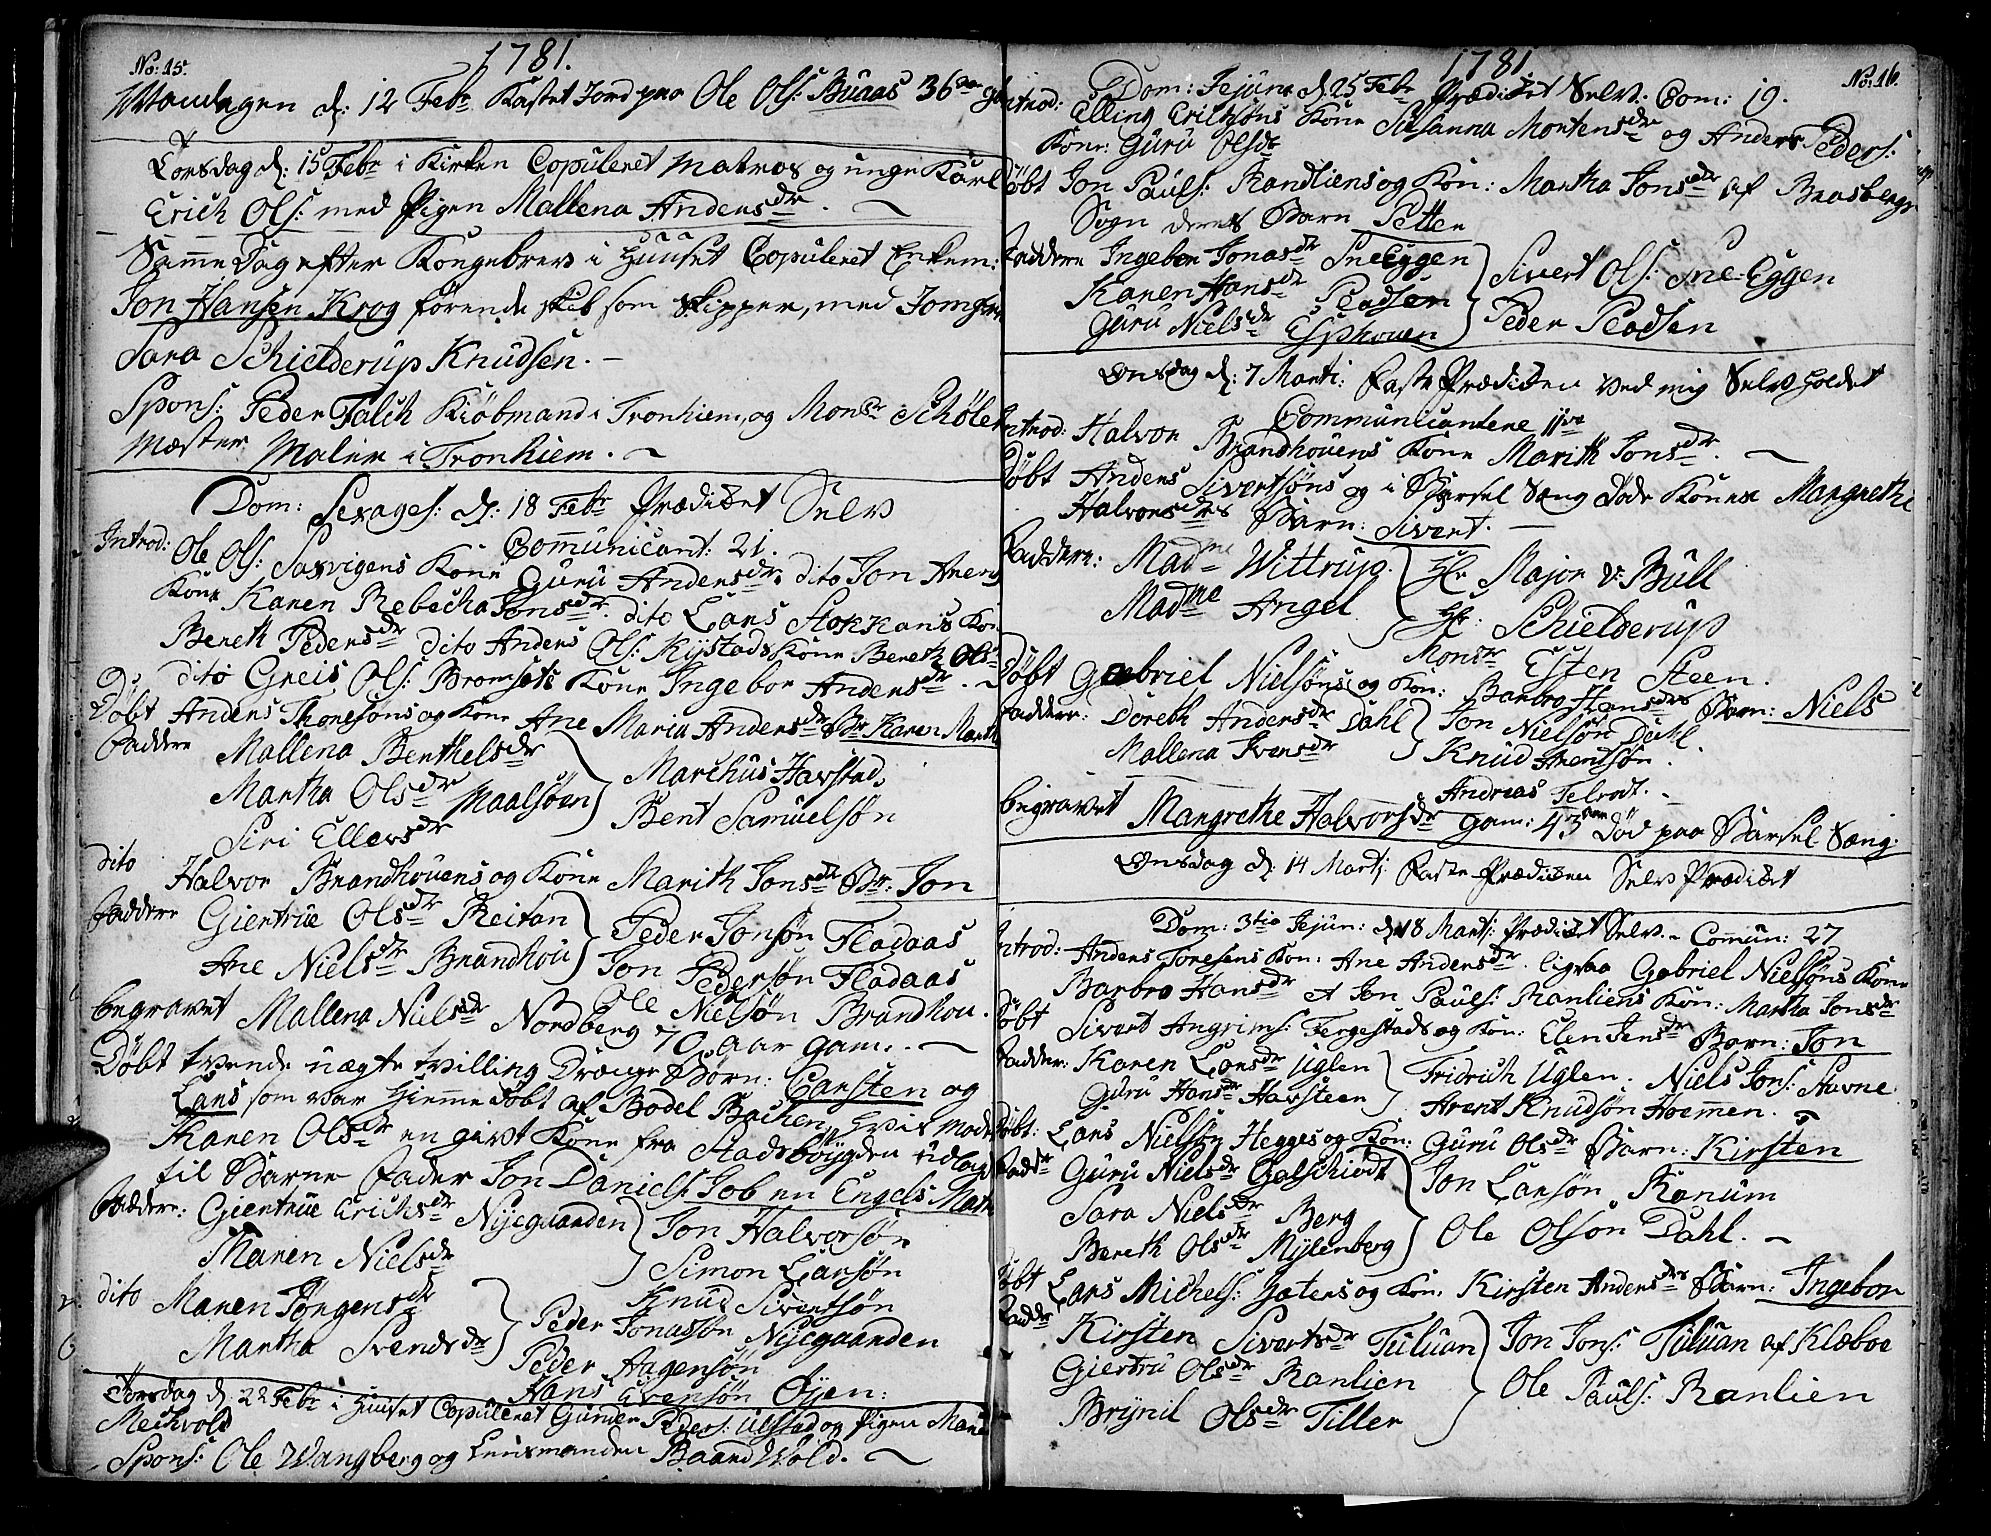 No: 15.
1781.
Mandagen d: 12 Febr Kastet Jord paa Ole Ols: Buaas 36 aar
Torsdag d: 15 Febr i Kirken Copuleret Matros og unge Karl
Erich Ols: med Pigen Mallena Andersdr.
Samme Dag efter Kongebrev i Huuset Copuleret Enkem:
Jon Hansen Krog förende skib som Skipper, med Jomfru
Sara Schielderup Knudsen.
Spons: Peder Falch Kiöbmand i Tronhiem, og Monsr Schöler
Mæster Maler i Tronhiem.
Dom: Sexages: d: 18 Febr Prædiket Selv
Communicant: 21.
Introd: Ole Ols: Saxvigens Kone Guru Andersdr. dito Jon
Kone Karen Rebecha Jonsdr. dito Lars Stokkans Kon
Bereth Pedersdr dito Anders Ols: Rystads Kone Bereth Ols
dito Greis Ols: Bromsets Kone Ingebor Andersdr.
Döbt Anders Thoresöns og Kone Ane Maria Andersdr Br: Karen Marth
Faddere Mallena Berthelsdr
Martha Olsdr Maalsöen
Siri Ellevsdr
Marchus Havstad
Bent Samuelsön
dito Halvor Brandhouens og Kone Marith Jonsdr Br: Jon
Faddere Giertrue Olsdr Reitan
Ane Nielsdr Brandhou
Peder Jonsön Fladaas
Jon Pedersön Fladaas
Ole Nielsön Brandhou.
begravet Mallena Nielsdr Nordberg 70 aar gam:
Döbt tvende uægte tvilling Drenge Börn: Carsten og
Lars som var Hiemmedöbt af Bodel Bachen, hvis Moder
Karen Olsdr en givt Kone fra Stadsböygden udlagde
til Barne Fader Jon Daniels: Job en Engels: Mat
Faddere: Giertrue Erichsdr Nÿegaarden
Maren Nielsdr
Jon Halvorsön
Simon Larsön
Knud Sivertsön
dito Maren Jörgensdr
Martha Svendsdr
Peder Jonassön Nÿegaarden
Peder Aagensön
Hans Evensön Öyen:
Torsdag d: 22 Febr i Huuset Copuleret Gunder Peders: Ulstad og Pigen Mari
Mechvold
Spons: Ole Wangberg og Lensmanden Baard Wold.
1781
No: 16.
Dom: Jejuna d: 25 Febr Prædiket Selv. Com: 19.
Introd: Elling Erichsöns Kone Susanna Mortensdr og Anders Peders:
Kone: Guru Olsdr
Döbt Jon Pauls: Ranliens og Kon: Martha Jonsdr af Brasbergs
Sogn deres Barn Petter
Faddere Ingebor Jonasdr Sneeggen
Karen Hansdr Readsen
Guru Nielsdr Esphouen
Sivert Ols: Sne-Eggen
Peder Readsen
Onsdag d: 7 Marti: Faste Prædiken ved mig Selv holdet
Communicantere 11ve
Introd: Halvor Brandhouens Kone Marith Jonsdr.
Döbt Anders Sivertsöns og i Barsel Sæng döde Kones Margrethe
Halvorsdrs Barn: Sivert.
Faddere: Madme Wittrup.
Madme Angel
Hr Major v: Bull
Hr: Schielderup
Monsr Esten Steen.
Döbt Gabriel Nielsöns og Kon: Barbro Hansdrs Barn: Niels
Faddere: Doreth Andersdr Dahl
Mallena Svensdr
Jon Nielsön Dahl.
Knud Arentsön.
Andreas Felrodt.
begravet Margrethe Halvorsdr gam: 43 aar död paa Barsel Sæng.
Onsdag d: 14 Marti: Faste Prædiken Selv Prædiket
Dom: 3tio Jejun: d: 18 Marti: Prædiket Selv. Commun: 27
Introd: Anders Toresens Kon: Ane Andersdr. ligesaa Gabriel Nielsöns Kone
Barbro Hansdr et Jon Pauls: Ranliens Kon: Martha Jonsdr
Döbt Sivert Angrims: Fergestads og Kon: Elen Jensdr Barn: Jon
Fadder: Karen Larsdr Uglen
Guru Hansdr Havsteen
Fridrich Uglen. Niels Jons: Stavne
Arent Knudsön Hoemmen.
Döbt: Lars Nielsön Hegges og Kon: Guru Olsdr Barn: Kirsten
Faddr Guru Nielsdr Galschiödt
Sara Nielsdr Berg
Bereth Olsdr Mÿlenberg
Jon Larsön Ranum
Ole Olsön Dahl.
Döbt Lars Michels: Gaters og Kon: Kirsten Andersdrs Barn: Ingebor
Faddr Kirsten Sivertsdr Tuluan
Giertru Olsdr Ranlien
Brÿnil Olsdr Tiller
Jon Jons: Tuluan af Klæboe
Ole Pauls: Ranlien